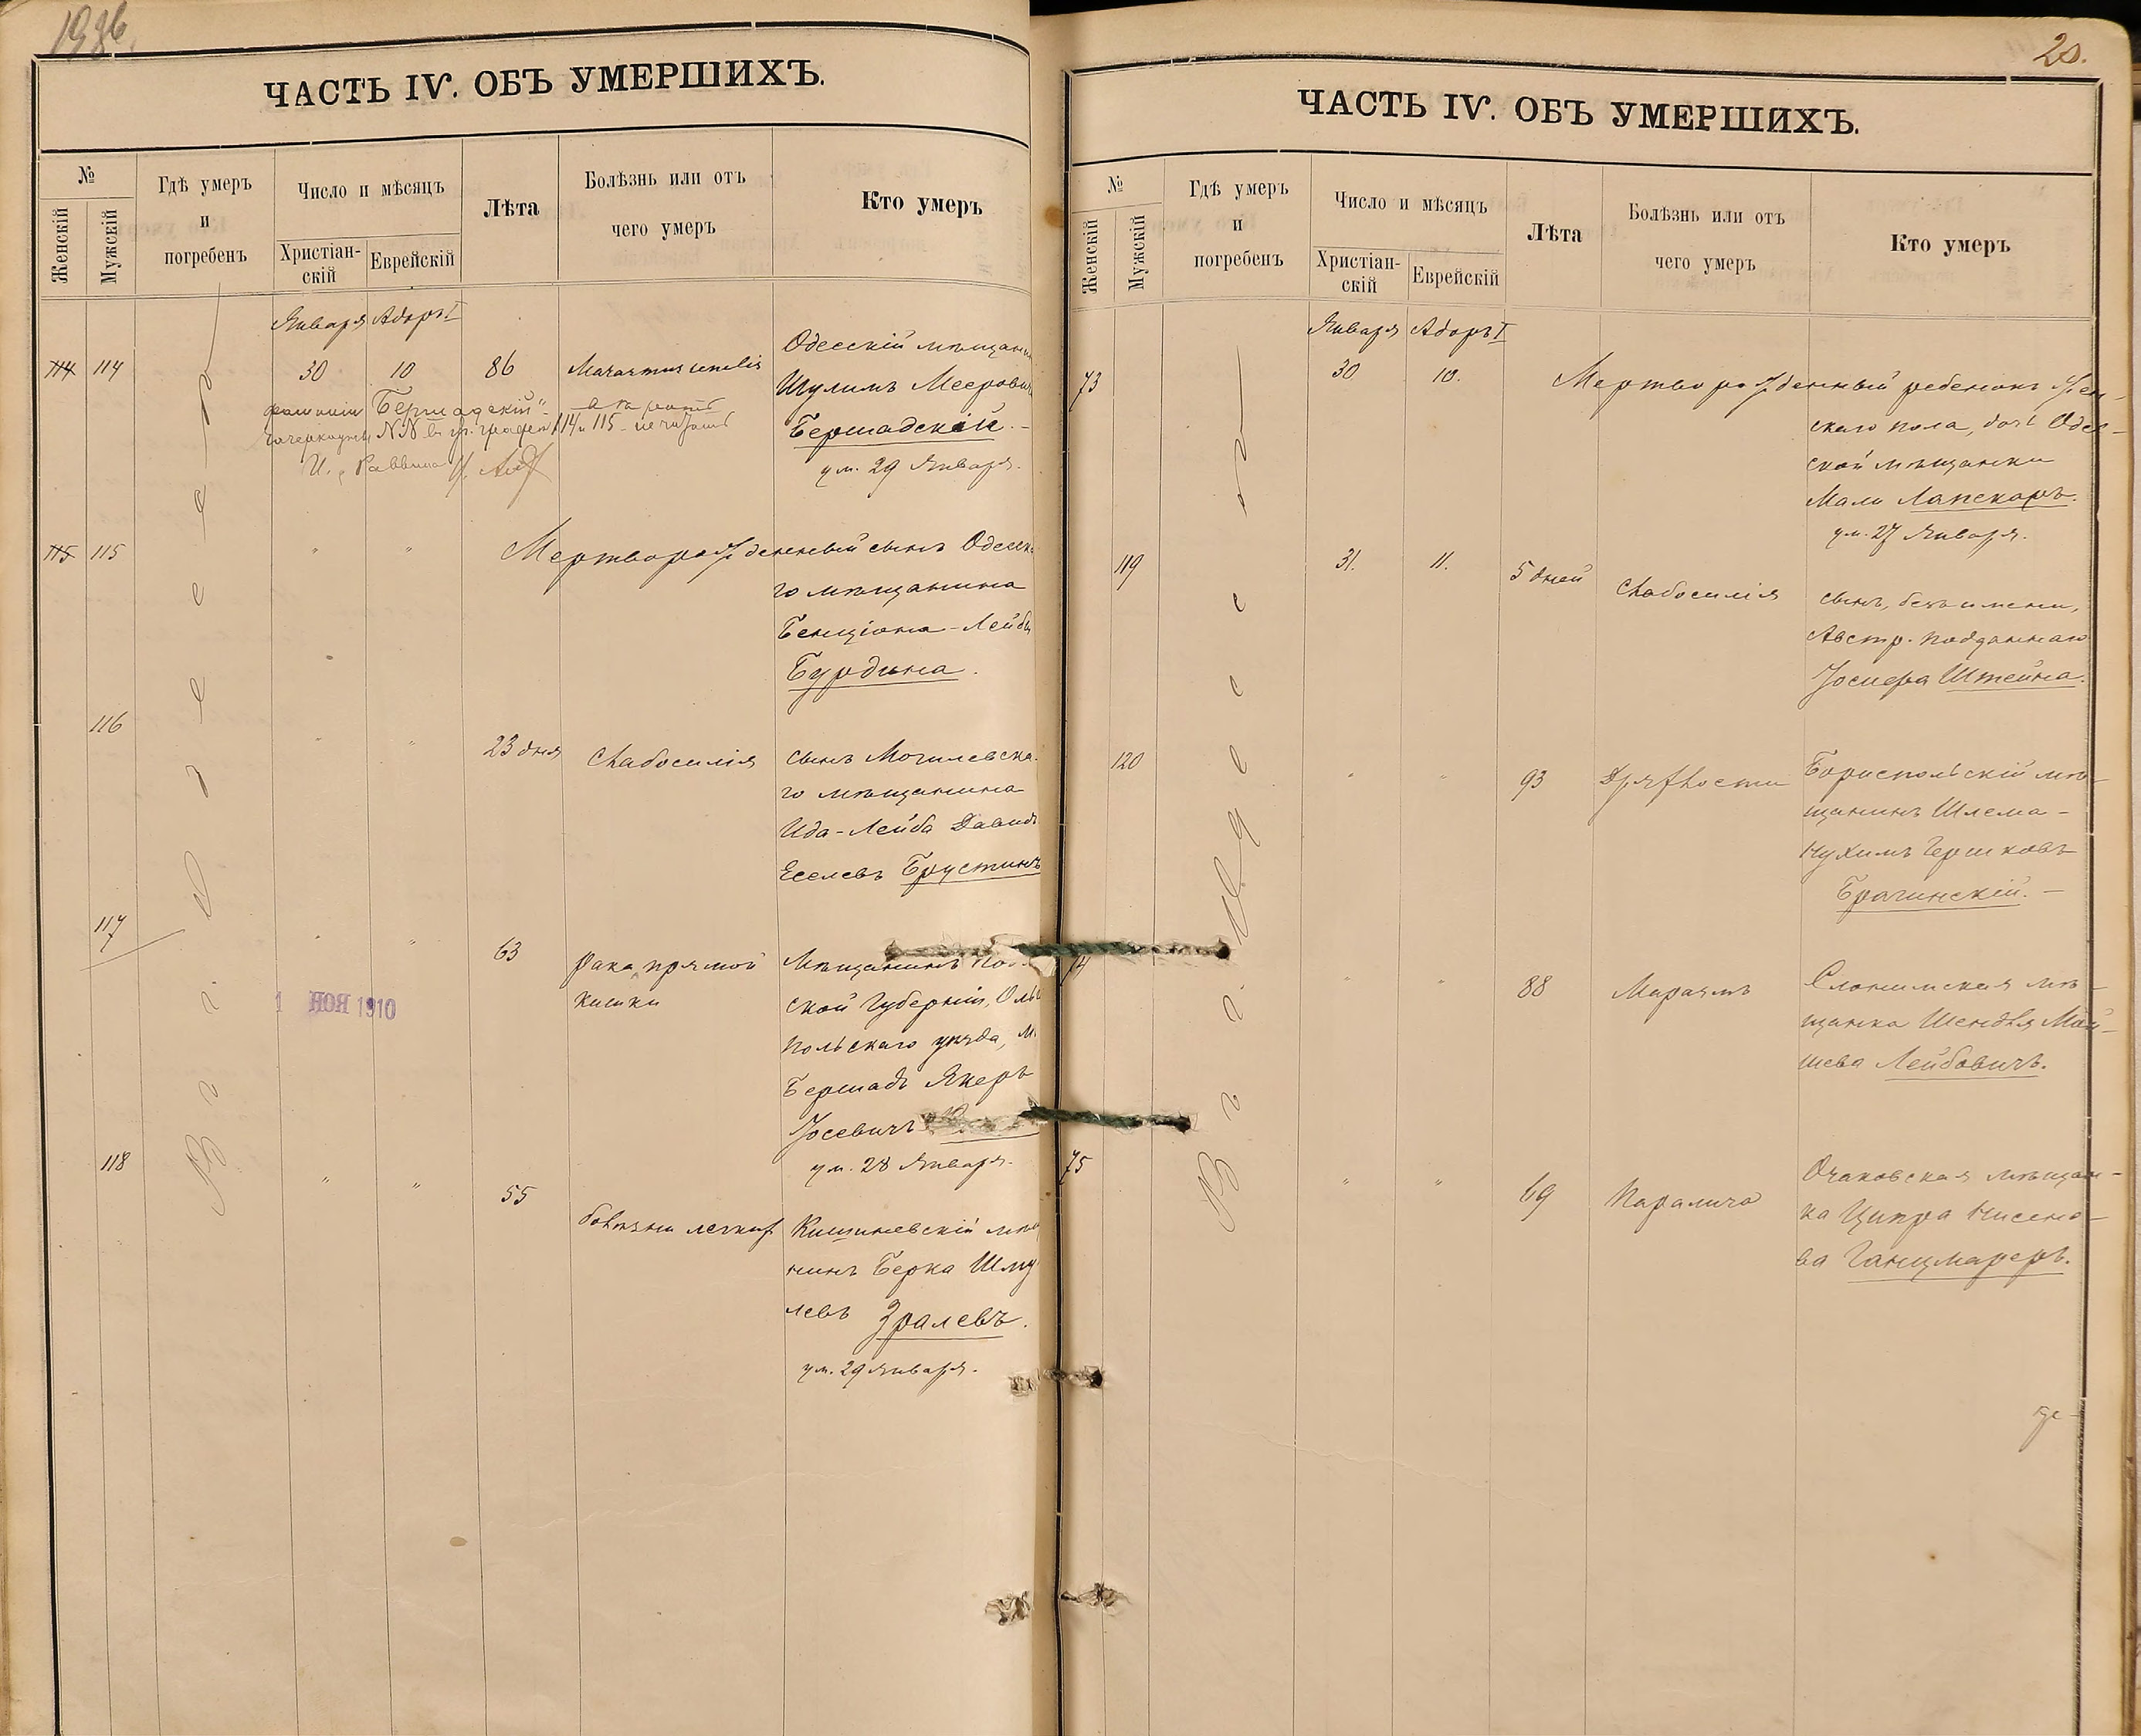 ЧАСТЬ IV. ОБЪ УМЕРШИХЪ.
№
Женскій
Мужскій
Гдѣ умеръ
и
погребенъ
Число и мѣсяцъ
Христіан-
скій
Еврейскій
Лѣта
Болѣзнь или отъ
чего умеръ
Кто умеръ
Января Адоръ I
114 114 30 10 86 Marasmus senilis
Одесскій мѣщанин
Шулимъ Мееровичъ
Бершадскій. -
ум. 29 Января.
"Бершадскій"
зачеркнутые NN въ гр. графѣ 114 и 115 - не читать
И. д. Раввина
115 115 " " Мертворожденный сынъ Одесска
го мѣщанина
Бенціона-Лейбы
Бурдина.
116 " " 23 дня Слабосилія
сынъ Могилевска-
го мѣщанина
Ида-Лейба Давидъ
Еселевъ Брустинъ
117 " " 63 рака прямой
кишки
Мѣщанинъ
ской Губерніи, Оль
польскаго уѣзда, м.
Бершадь Янкеръ
Іосевичъ
ум. 28 Января.
1 НОЯ 1910
118 " " 55 болѣзни легкихъ
Кишиневскій мѣщ
нинъ Берка Шму
левъ Зралевъ.
ум. 29 Января.
В г. Одессѣ
20.
ЧАСТЬ IV. ОБЪ УМЕРШИХЪ.
№
Женскій
Мужскій
Гдѣ умеръ
и
погребенъ
Число и мѣсяцъ
Христіан-
скій
Еврейскій
Лѣта
Болѣзнь или отъ
чего умеръ
Кто умеръ
Января Адоръ I
73 30 10. Мертворожденный ребенокъ жен-
скаго пола, дочь Одес-
ской мѣщанки
Мали Лапскеръ.
ум. 27 Января.
119 31. 11. 5 дней Слабосилія
сынъ, безъ имени,
Австр. подданнаго
Іосифа Штейна.
120 " " 93 Дряхлости
Бориспольскій мѣ-
щанинъ Шлема-
Нухимъ Гершковъ
Брагинскій. -
74 " " 88 Маразмъ
Слонимская мѣ-
щанка Шендля Мой-
шева Лейбовичъ.
75 " " 69 Паралича
Очаковская мѣщан-
ка Ципра Нисено-
ва Ганцмареръ.
В г. Одессѣ